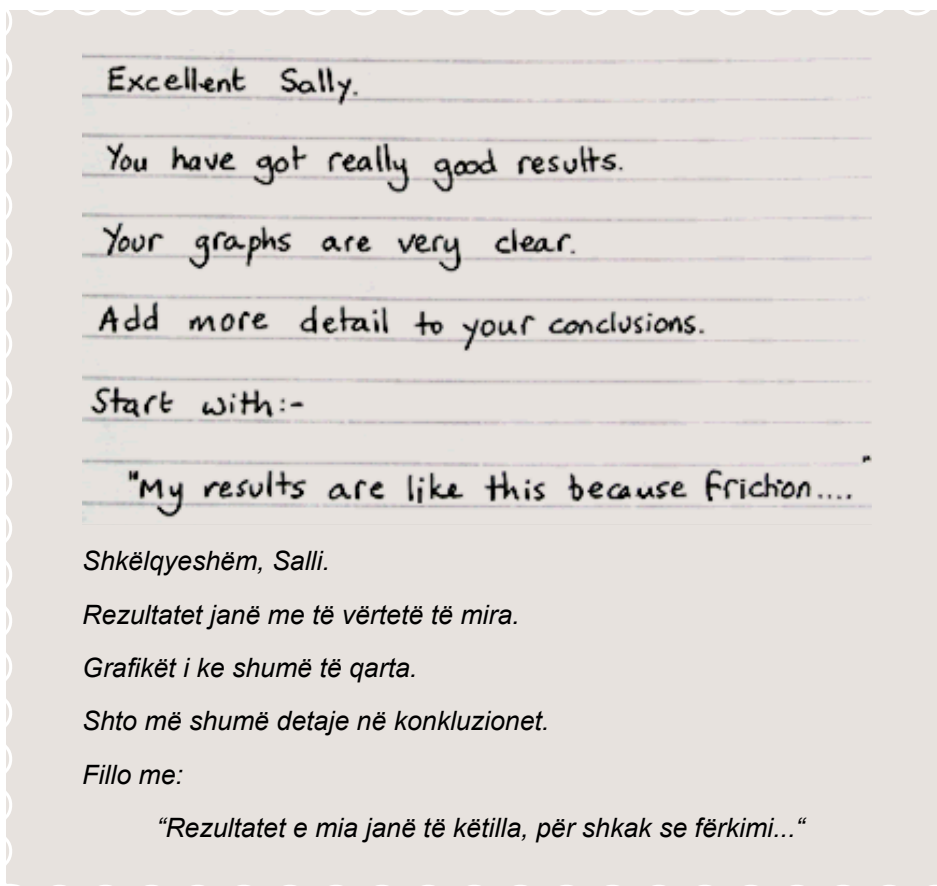 Excellent Sally.
You have got really good results.
Your graphs are very clear.
Add more detail to your conclusions.
Start with:-
"My results are like this because friction...."
Shkëlqyeshëm, Salli.
Rezultatet janë me të vërtetë të mira.
Grafikët i ke shumë të qarta.
Shto më shumë detaje në konkluzionet.
Fillo me:
“Rezultatet e mia janë të këtilla, për shkak se fërkimi...“